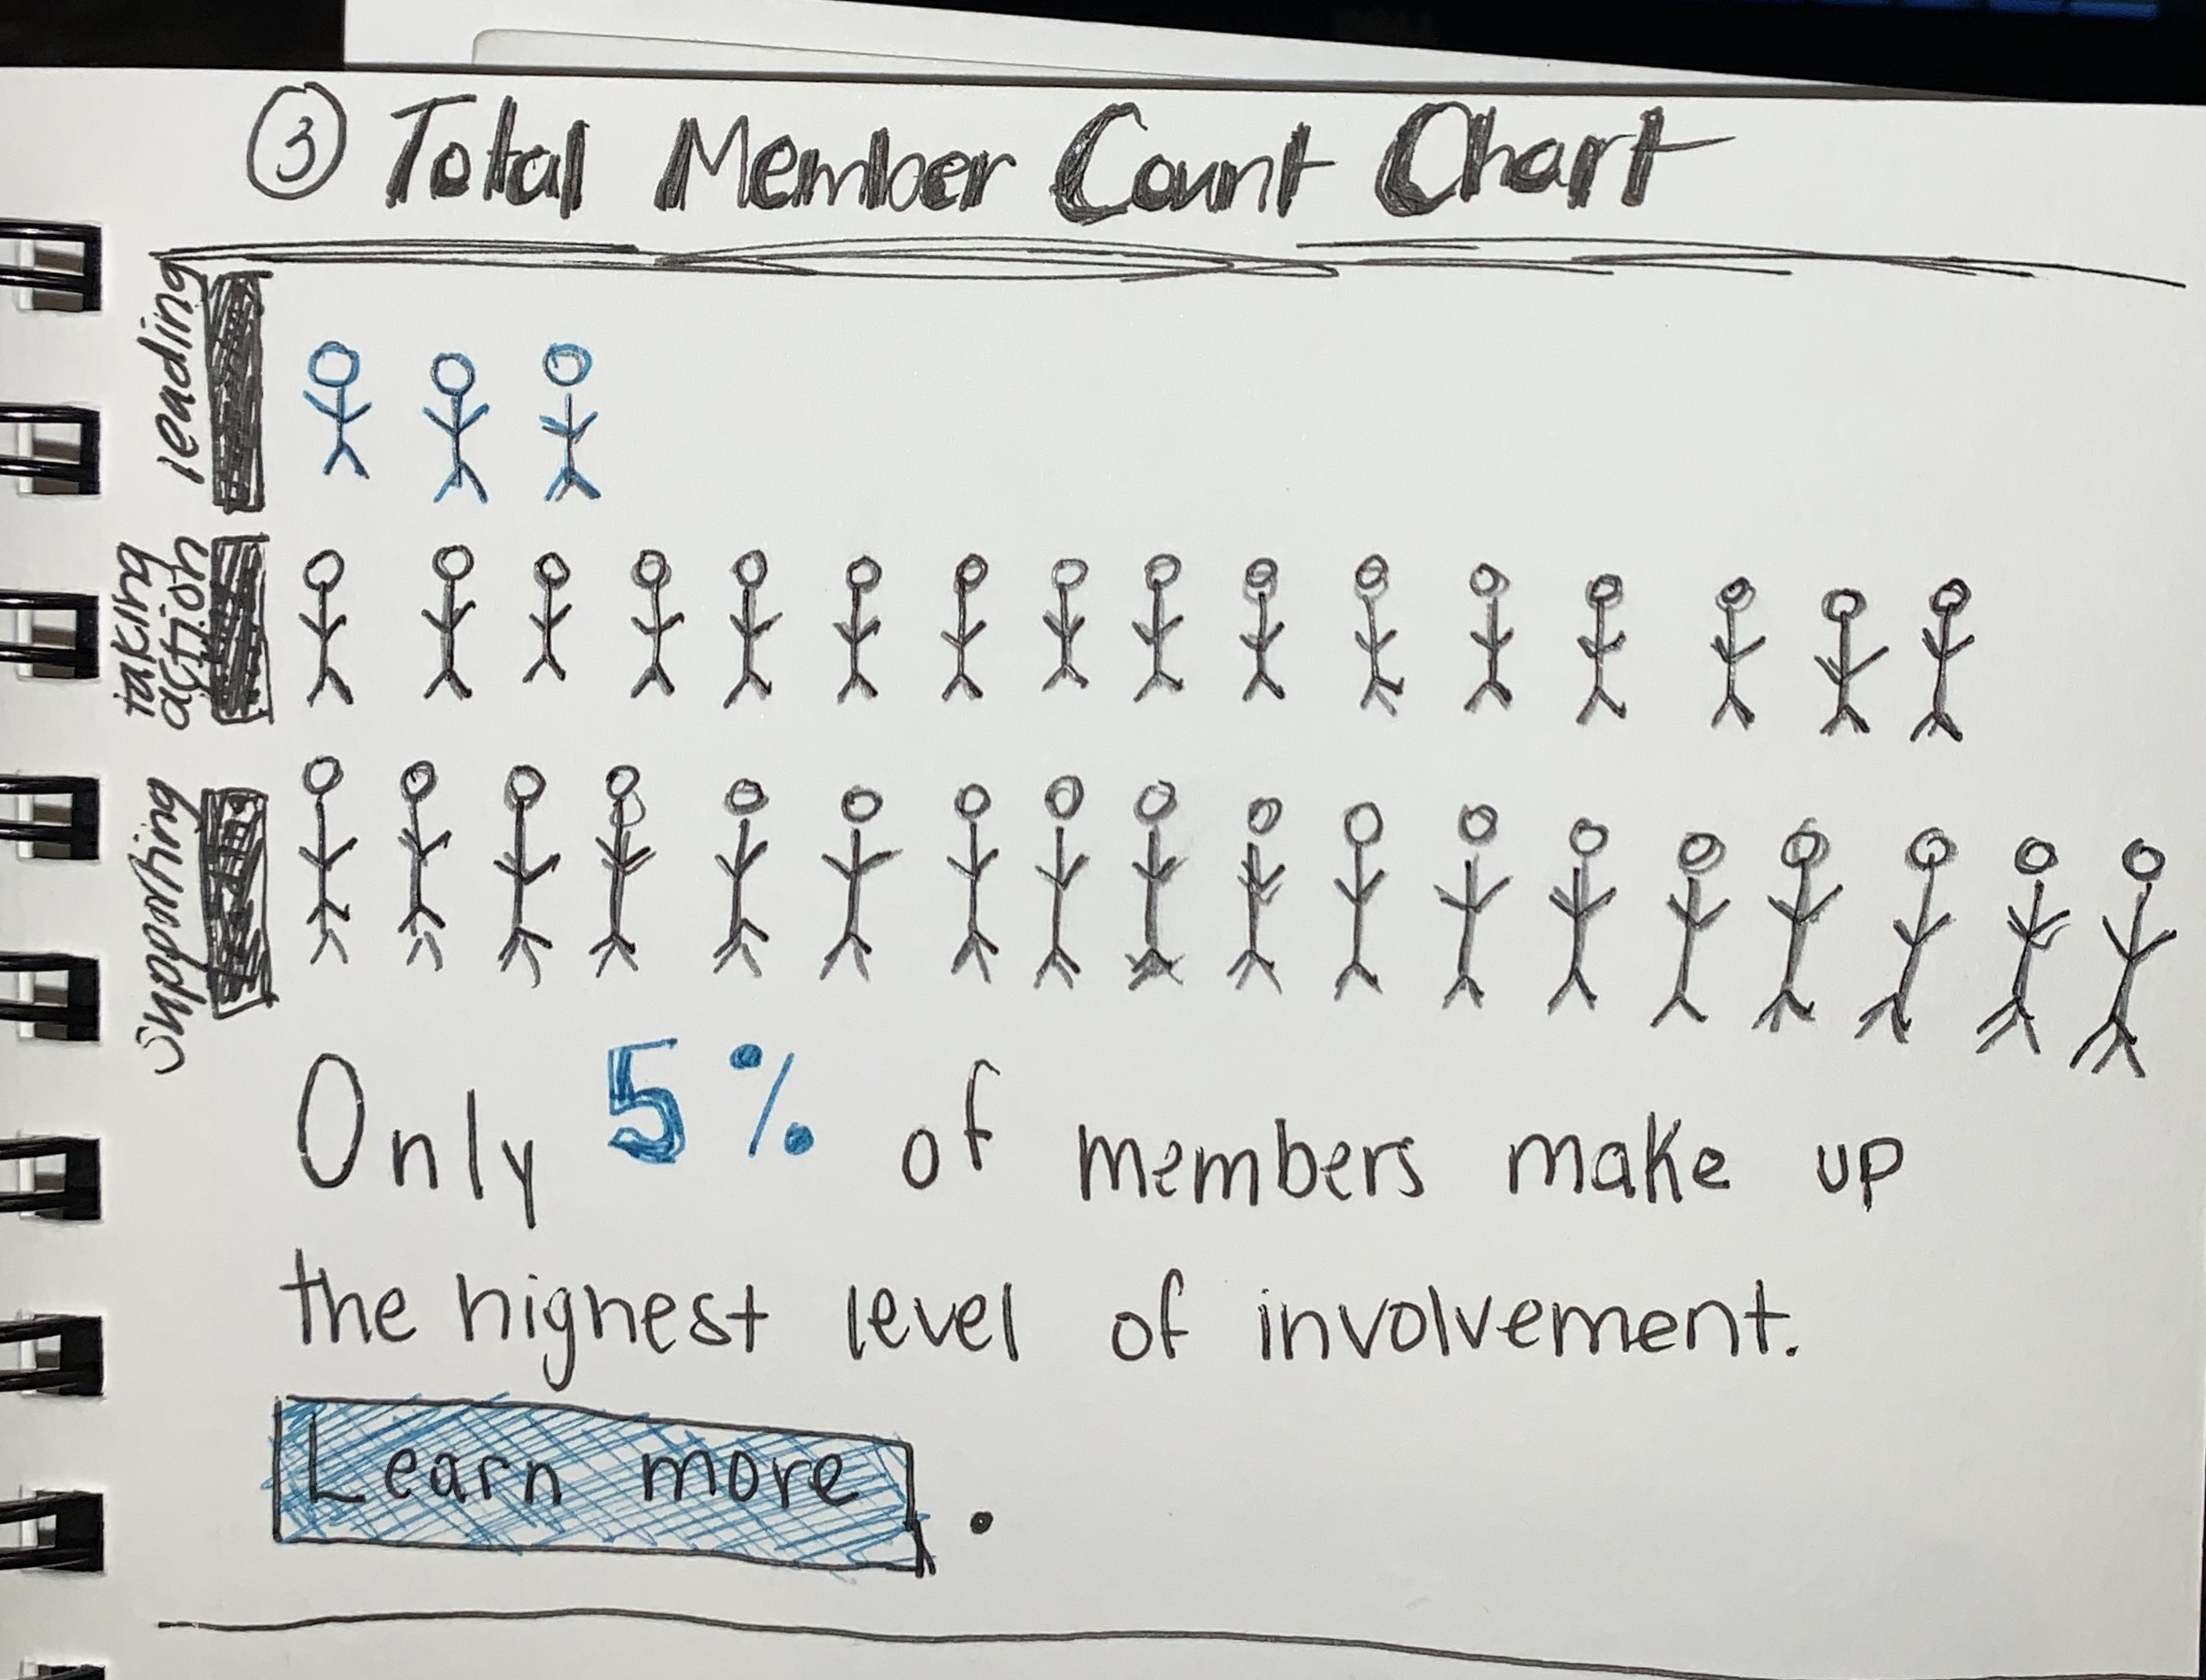 3 Total Member Count Chart
leading
taking
action
supporting
Only 5% of members make up
the highest level of involvement.
Learn more .